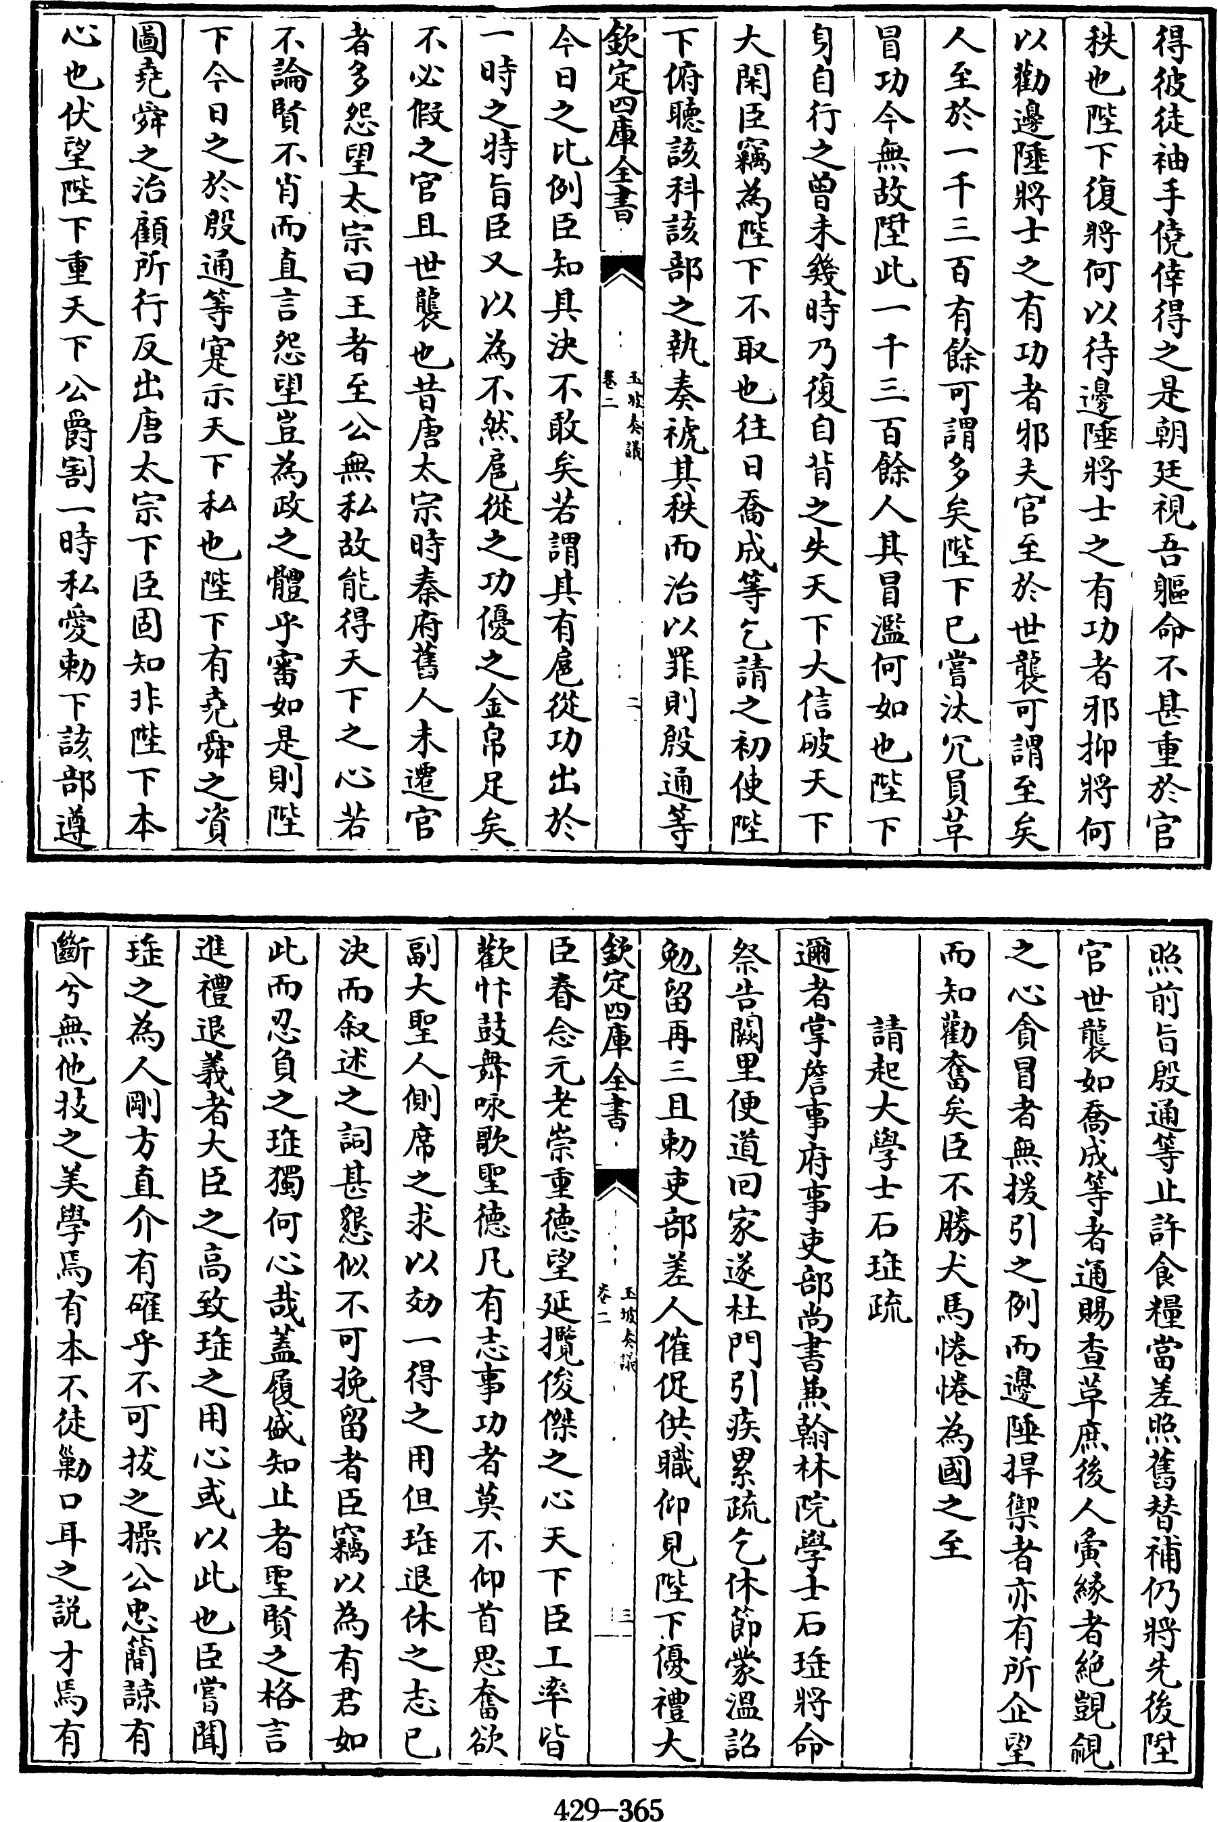 得彼徒袖手僥倖得之是朝廷視吾軀命不甚重於官
秩也陛下復將何以待邊陲將士之有功者邪抑將何
以勸邊陲將士之有功者邪夫官至於世襲可謂至矣
人至於一千三百有餘可謂多矣陛下已嘗汰冗員革
冒功今無故陞此一千三百餘人其冒濫何如也陛下
身自行之曾未幾時乃復自背之失天下大信破天下
大閑臣竊為陛下不取也往日喬成等乞請之初使陛
下俯聽該科該部之執奏褫其秩而治以罪則殷通等
欽定四庫全書
玉坡奏議
卷二
二
今日之比例臣知其決不敢矣若謂其有扈從功出於
一時之特旨臣又以為不然扈從之功優之金帛足矣
不必假之官且世襲也昔唐太宗時秦府舊人未遷官
者多怨望太宗曰王者至公無私故能得天下之心若
不論賢不肖而直言怨望豈為政之體乎審如是則陛
下今日之於殷通等寔示天下私也陛下有堯舜之資
圖堯舜之治顧所行反出唐太宗下臣固知非陛下本
心也伏望陛下重天下公爵割一時私愛勅下該部遵
照前旨殷通等止許食糧當差照舊替補仍將先後陞
官世襲如喬成等者通賜查革庶後人夤緣者絶覬覦
之心貪冒者無援引之例而邊陲捍禦者亦有所企望
而知勸奮矣臣不勝犬馬惓惓為國之至
請起大學士石珤疏
邇者掌詹事府事吏部尚書兼翰林院學士石珤將命
祭告闕里便道回家遂杜門引疾累疏乞休節蒙溫詔
勉留再三且勅吏部差人催促供職仰見陛下優禮大
欽定四庫全書
玉坡奏議
卷二
三
臣眷念元老崇重德望延攬俊傑之心天下臣工率皆
歡忭鼓舞咏歌聖德凡有志事功者莫不仰首思奮欲
副大聖人側席之求以効一得之用但珤退休之志已
決而叙述之詞甚懇似不可挽留者臣竊以為有君如
此而忍負之珤獨何心哉蓋履盛知止者聖賢之格言
進禮退義者大臣之高致珤之用心或以此也臣嘗聞
珤之為人剛方直介有確乎不可拔之操公忠簡諒有
斷兮無他技之美學焉有本不徒勦口耳之説才焉有
429-365